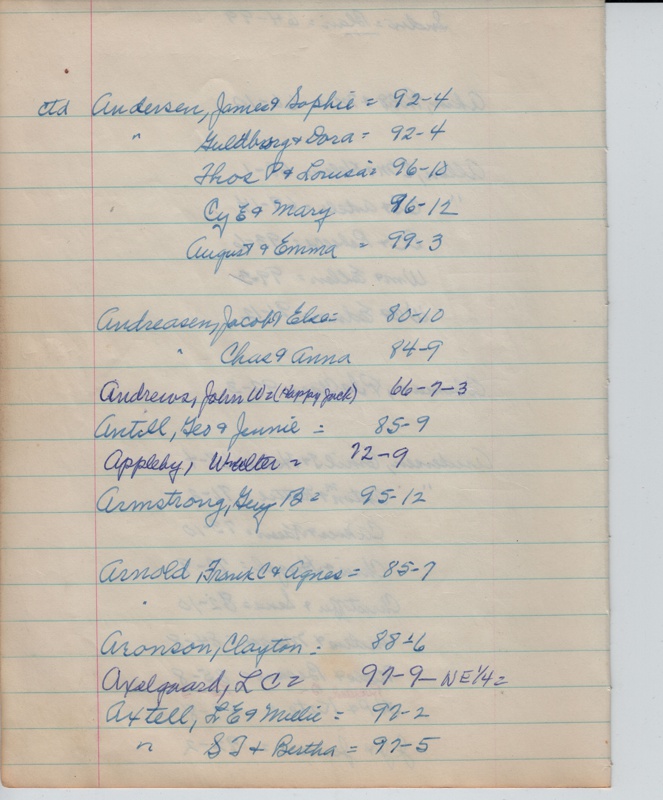 ctd Andersen, James & Sophie = 92-4
" Guldborg & Dora = 92-4
Thos P & Louisa = 96-10
Cy E & Mary 96-12
August & Emma = 99-3
Andreasen, Jacob & Else = 80-10
" Chas & Anna 84-9
Andrews, John W = (Happy Jack) 66-7-3
Antill, Geo & Jennie = 85-9
Appleby, Walter = 72-9
Armstrong, Guy B = 95-12
Arnold, Frank C & Agnes = 85-7
"
Aronson, Clayton = 88-6
Axelgaard, L C = 97-9 - NE 1/4 =
Axtell, L E & Millie = 97-2
" S T & Bertha = 97-5